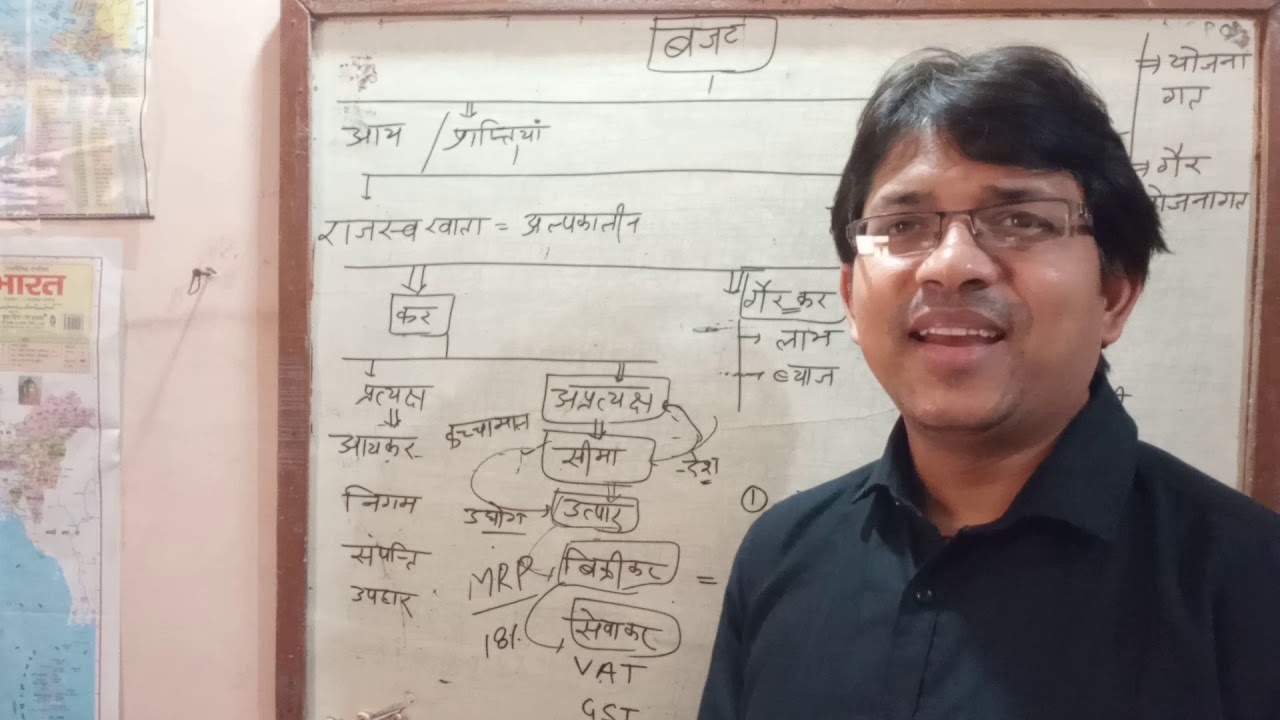 बजट
आय / प्राप्तियां
राजस्व खाता = अल्पकालीन
कर
गैर कर
→ लाभ
→ ब्याज
प्रत्यक्ष
आयकर
निगम
संपत्ति
उपहार
अप्रत्यक्ष
कच्चामाल
सीमा
देश
उद्योग
उत्पाद
MRP
बिक्रीकर =
18%
सेवाकर
VAT
GST
①
⇒ योजना
गत
⇒ गैर
योजनागत
भारत